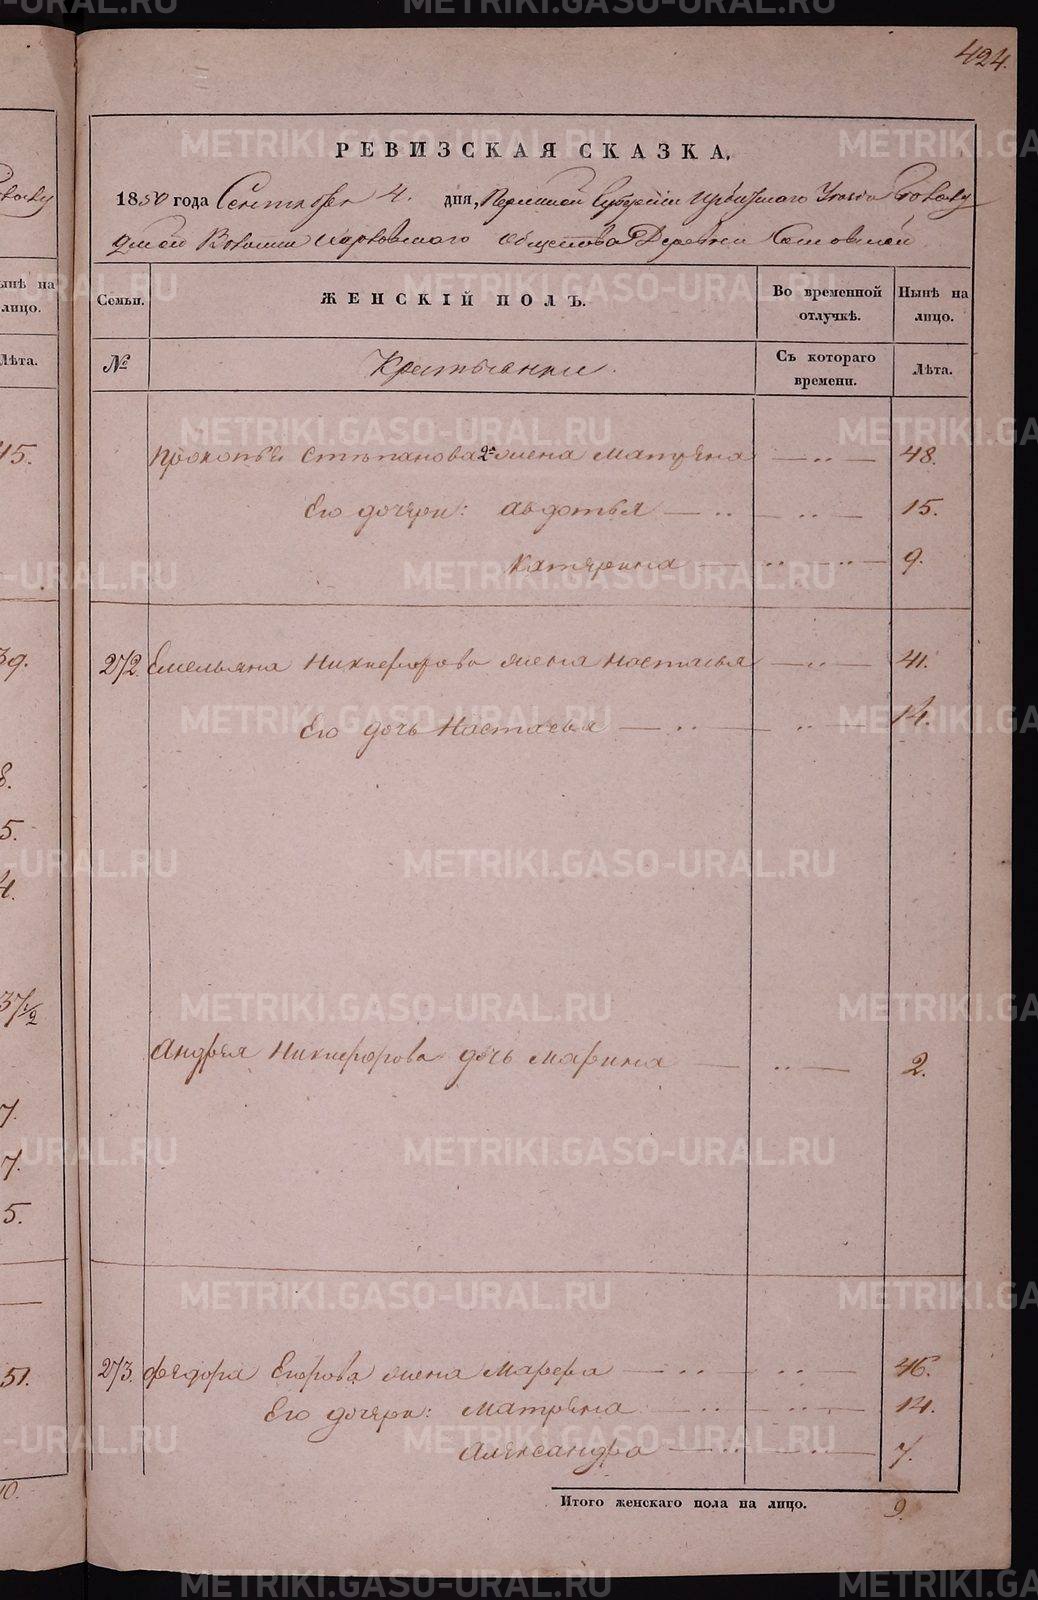 424.
РЕВИЗСКАЯ СКАЗКА,
1850 года Сентября 4. дня, Пермской Губернии Ирбитскаго Уезда
Волости Харловскаго общества Деревни
Семьи.
ЖЕНСКІЙ ПОЛЪ.
Во временной отлучкѣ.
Нынѣ на лицо.
№
Крестьянки.
Съ котораго времени.
Лѣта.
Прокопья Степанова 2я жена Матрена — " — 48.
Его дочери: Авдотья — " — " — 15.
Катерина — " — " — 9.
272. Емельяна Никифорова жена Настасья — " — 41.
Его дочь Настасья — " — " — 14.
Андрея Никифорова дочь Марина — " — 2.
273. Федора Егорова жена Марфа — " — " — 46.
Его дочери: Матрена — " — " — 14.
Александра — " — " — 7.
Итого женскаго пола на лицо. 9.
ынѣ на
лицо.
Лѣта.
45.
39.
8.
5.
4.
37 1/2
7.
7.
5.
51.
10.
METRIKI.GASO-URAL.RU